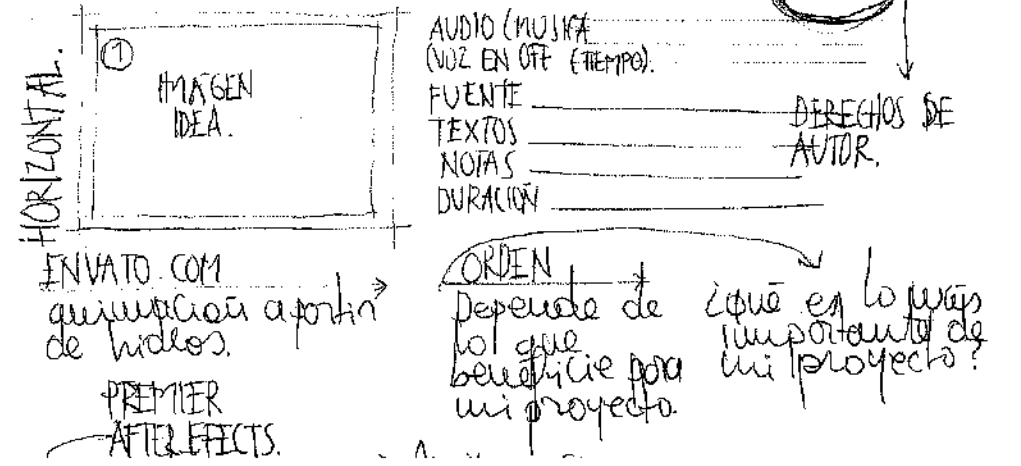 HORIZONTAL.
1
IMAGEN
IDEA.
AUDIO (MUSIKA
(VOZ EN OFF (TIEMPO).
FUENTE
TEXTOS
NOTAS
DURACIÓN
DERECHOS DE
AUTOR.
ENVATO.COM
animación apartir
de videos.
PREMIER
AFTER EFFECTS.
ORDEN
Depende de
lo que
beneficie para
mi proyecto.
¿qué es lo más
importante de
mi proyecto?